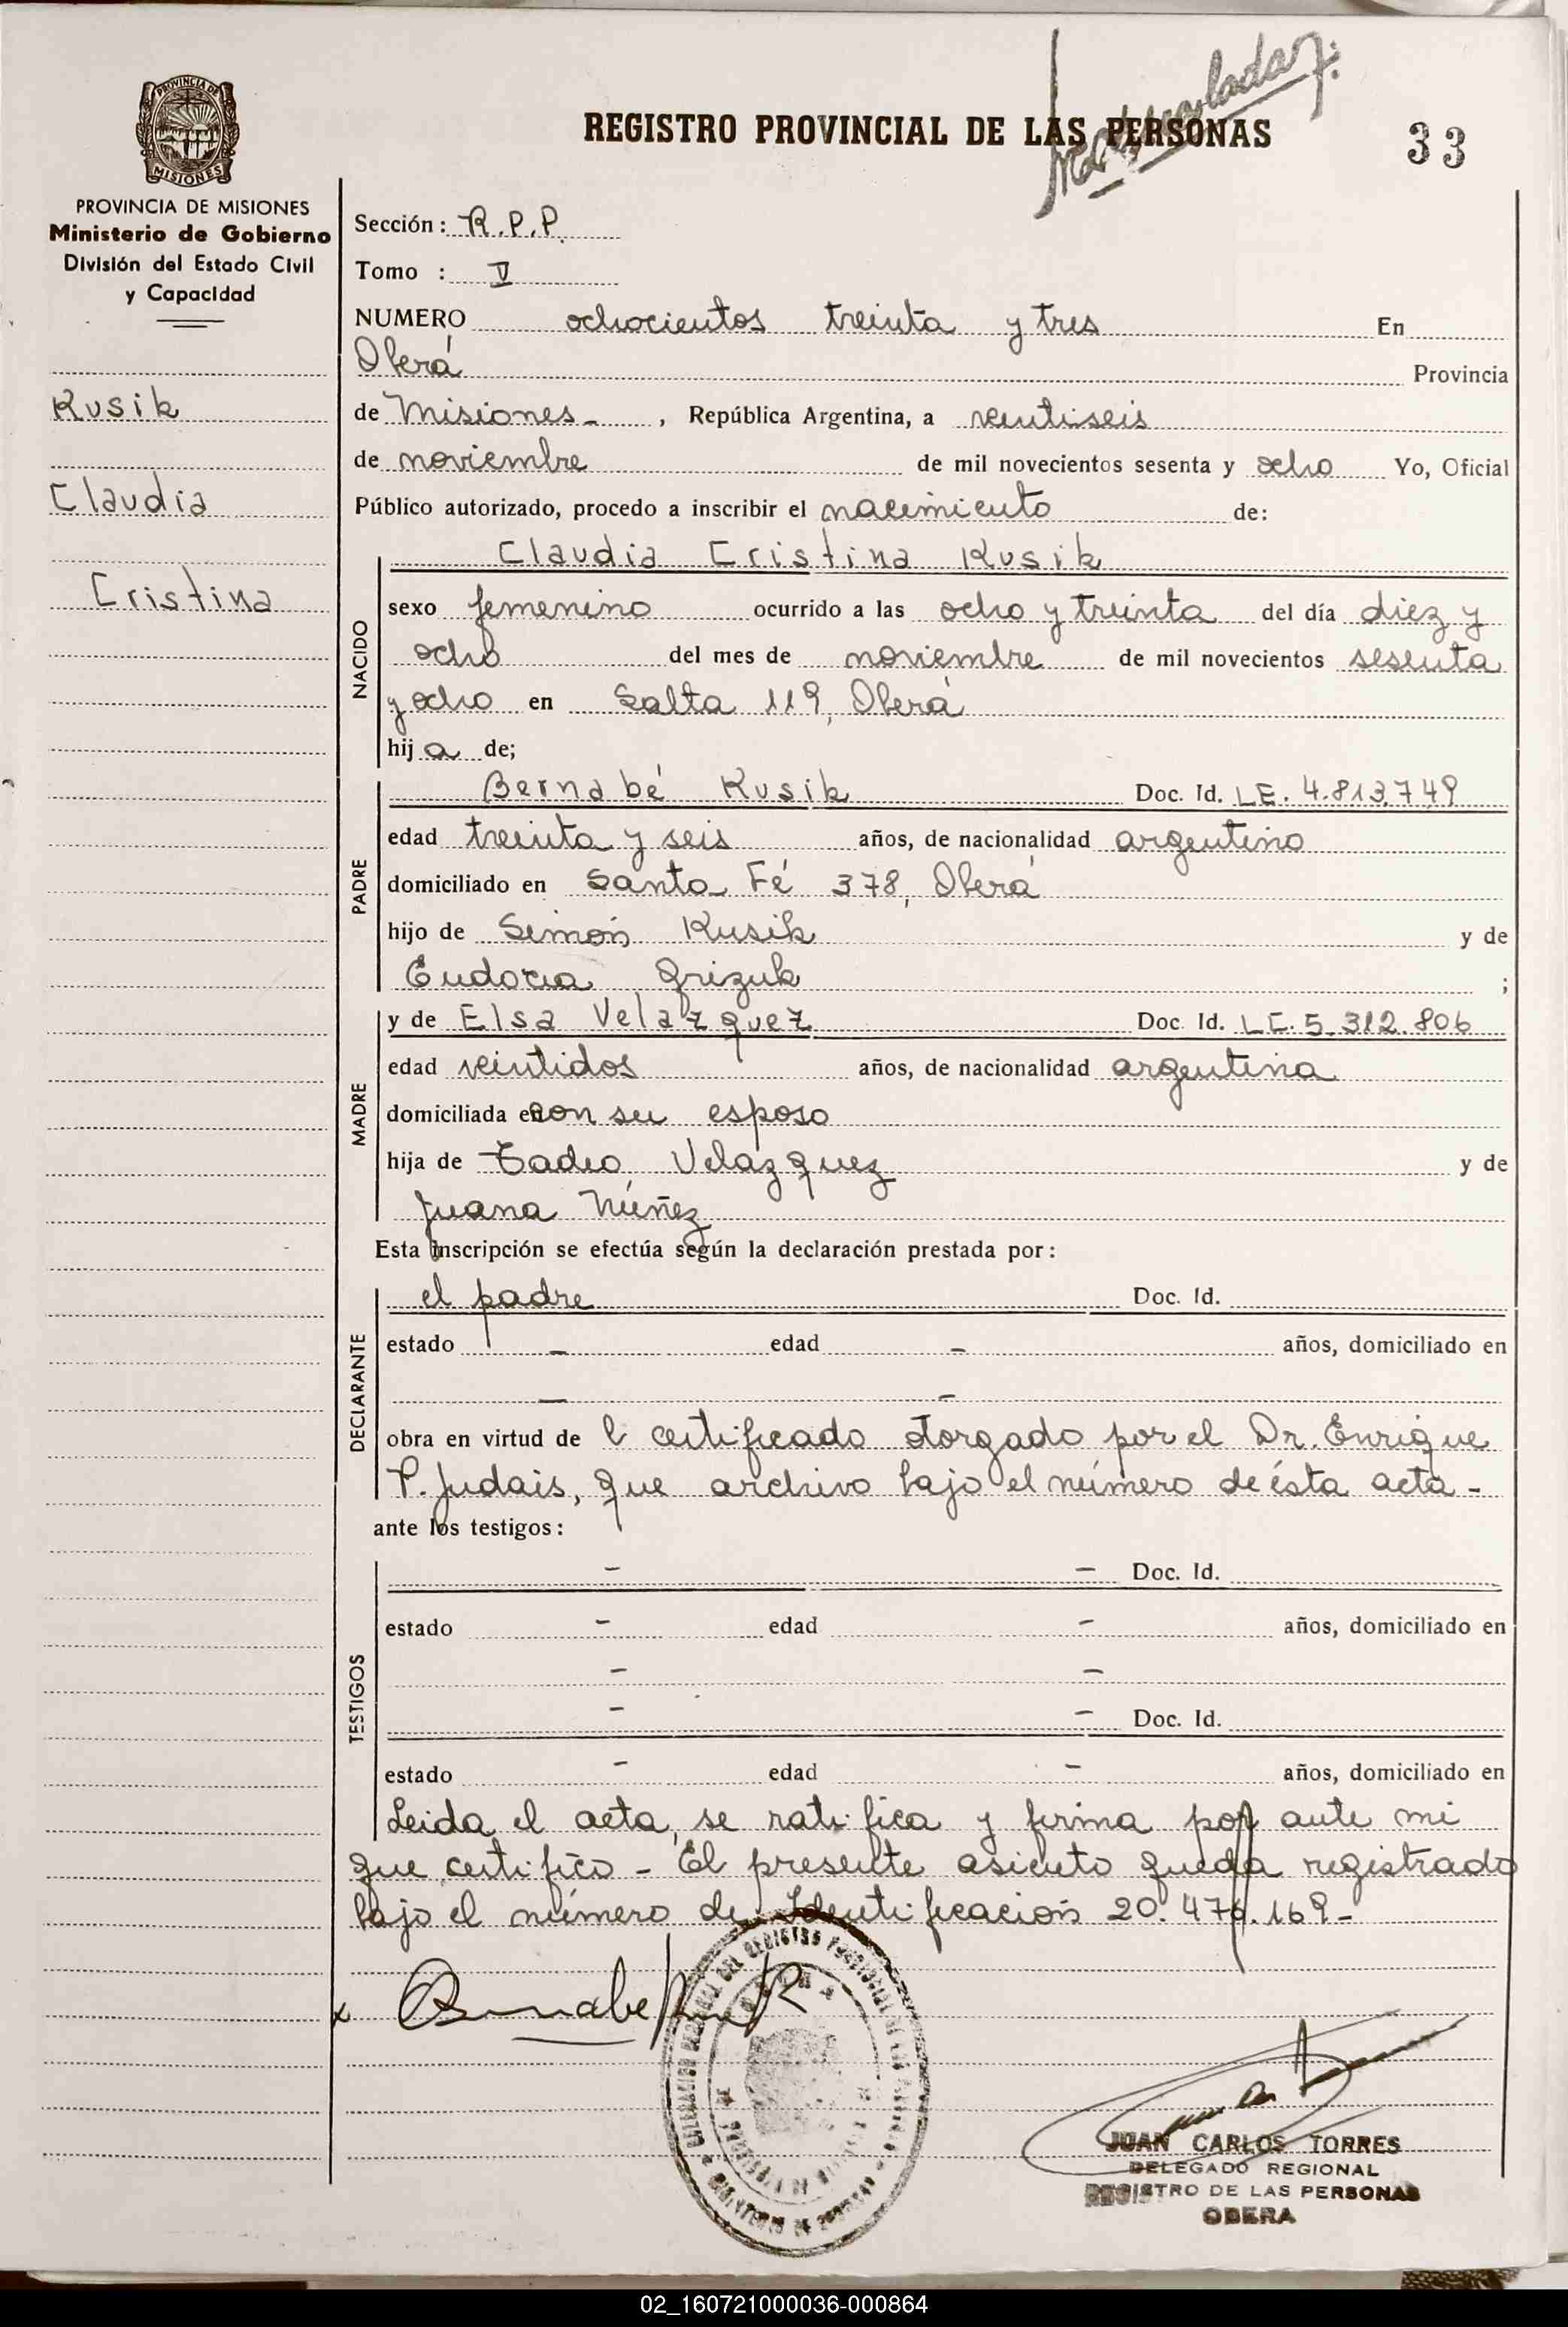 PROVINCIA DE
MISIONES
REGISTRO PROVINCIAL DE LAS PERSONAS
33
PROVINCIA DE MISIONES
Ministerio de Gobierno
División del Estado Civil
y Capacidad
Kusik
Claudia
Cristina
Sección: R.P.P.
Tomo : V
NUMERO ochocientos treinta y tres En
Oberá Provincia
de Misiones - , República Argentina, a veintiseis
de noviembre de mil novecientos sesenta y ocho Yo, Oficial
Público autorizado, procedo a inscribir el nacimiento de:
NACIDO
Claudia Cristina Kusik
sexo femenino ocurrido a las ocho y treinta del día diez y
ocho del mes de noviembre de mil novecientos sesenta
y ocho en Salta 119, Oberá
hija de;
PADRE
Bernabé Kusik Doc. Id. LE. 4.813.749
edad treinta y seis años, de nacionalidad argentino
domiciliado en Santa Fé 378, Oberá
hijo de Simón Kusik y de
Eudocia Grizuk ;
MADRE
y de Elsa Velazquez Doc. Id. LC. 5.312.806
edad veintidos años, de nacionalidad argentina
domiciliada en con su esposo
hija de Tadeo Velazquez y de
Juana Núñez
Esta inscripción se efectúa según la declaración prestada por:
DECLARANTE
el padre Doc. Id.
estado - edad - años, domiciliado en
- -
obra en virtud de l certificado otorgado por el Dr. Enrique
P. Judais, que archivo bajo el número de ésta acta -
ante los testigos:
TESTIGOS
- - Doc. Id.
estado - edad - años, domiciliado en
- -
- - Doc. Id.
estado - edad - años, domiciliado en
Leida el acta, se ratifica y firma por ante mi
que certifico - El presente asiento queda registrado
bajo el número de Identificación 20.474.169 -
x Bernabe
JUAN CARLOS TORRES
DELEGADO REGIONAL
REGISTRO DE LAS PERSONAS
OBERA
02_160721000036-000864